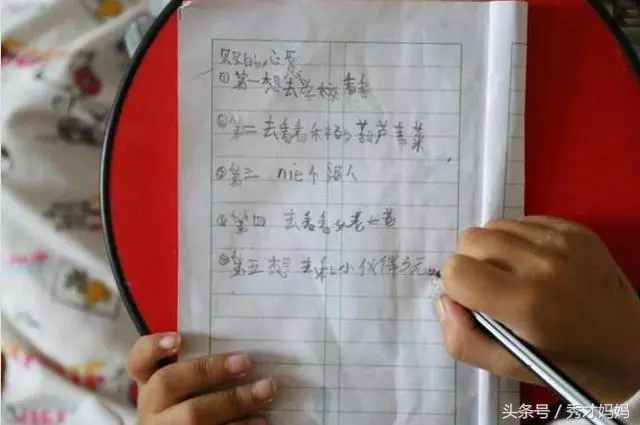 贝贝的心愿
①第一想去学校看看
②第二去看看乐乐的葫芦青菜
③第三 nie个泥人
④第四 去看看
⑤第五想 小伙伴多元
头条号 / 秀才妈妈